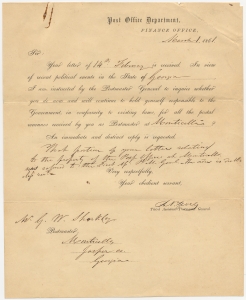 Post Office Department,
FINANCE OFFICE,
March 1, 1861
Sir
Your letter of 14th February is received. In view
of recent political events in the State of Georgia
I am instructed by the Postmaster General to inquire whether
you do now and will continue to hold yourself responsible to the
Government in conformity to existing laws for all the postal
moneys received by you as Postmaster at Monticello?
An immediate and distinct reply is requested.
That portion of your letter relating
to the of the Post Office at Monticello
Very respectfully,
Your obedient servant,
Third Assistant Postmaster General.
Mr. G. W.
Postmaster,
Monticello
Jasper co
Georgia